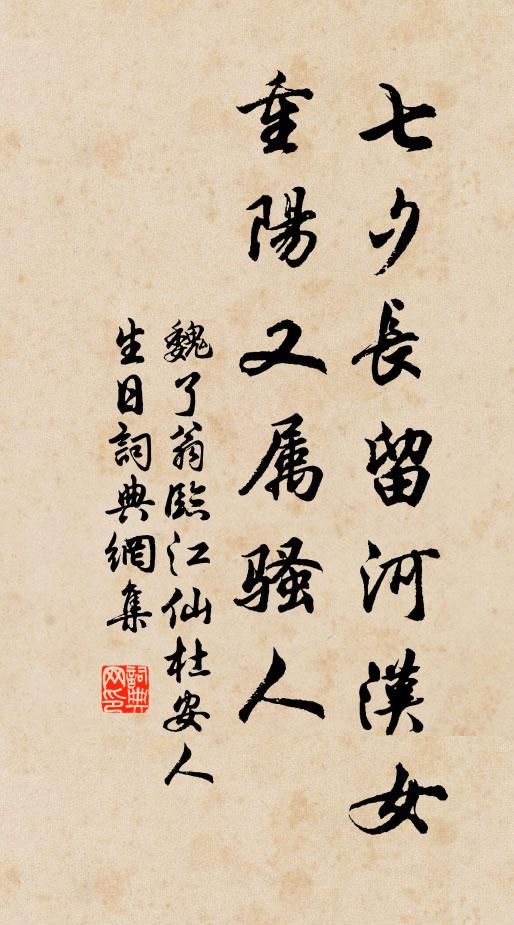 七夕長留河漢女
重陽又属骚人
魏了翁臨江仙杜安人
生日詞典網集
詞典
网印